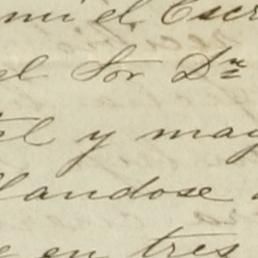 mi el Escr
el Sor Dn
tel y may
llandose
en tres